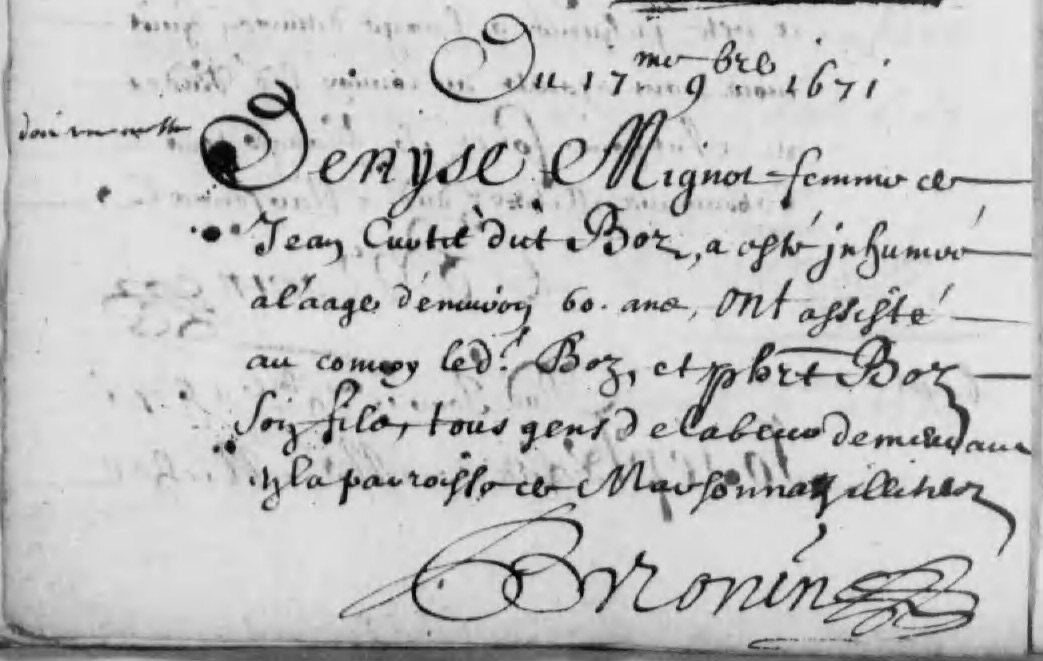 Du 17me 9bre 1671
Denyse Mignot femme de
Jean Cuttet dit Boz, a esté jnhumée
a l'aage d'environ 60. ans, ont assisté
au convoy led.t Boz, et phbrt Boz
son filz, tous gens de labeur demeurans
en la parroisse de Marsonnaz illitérez
Bronin